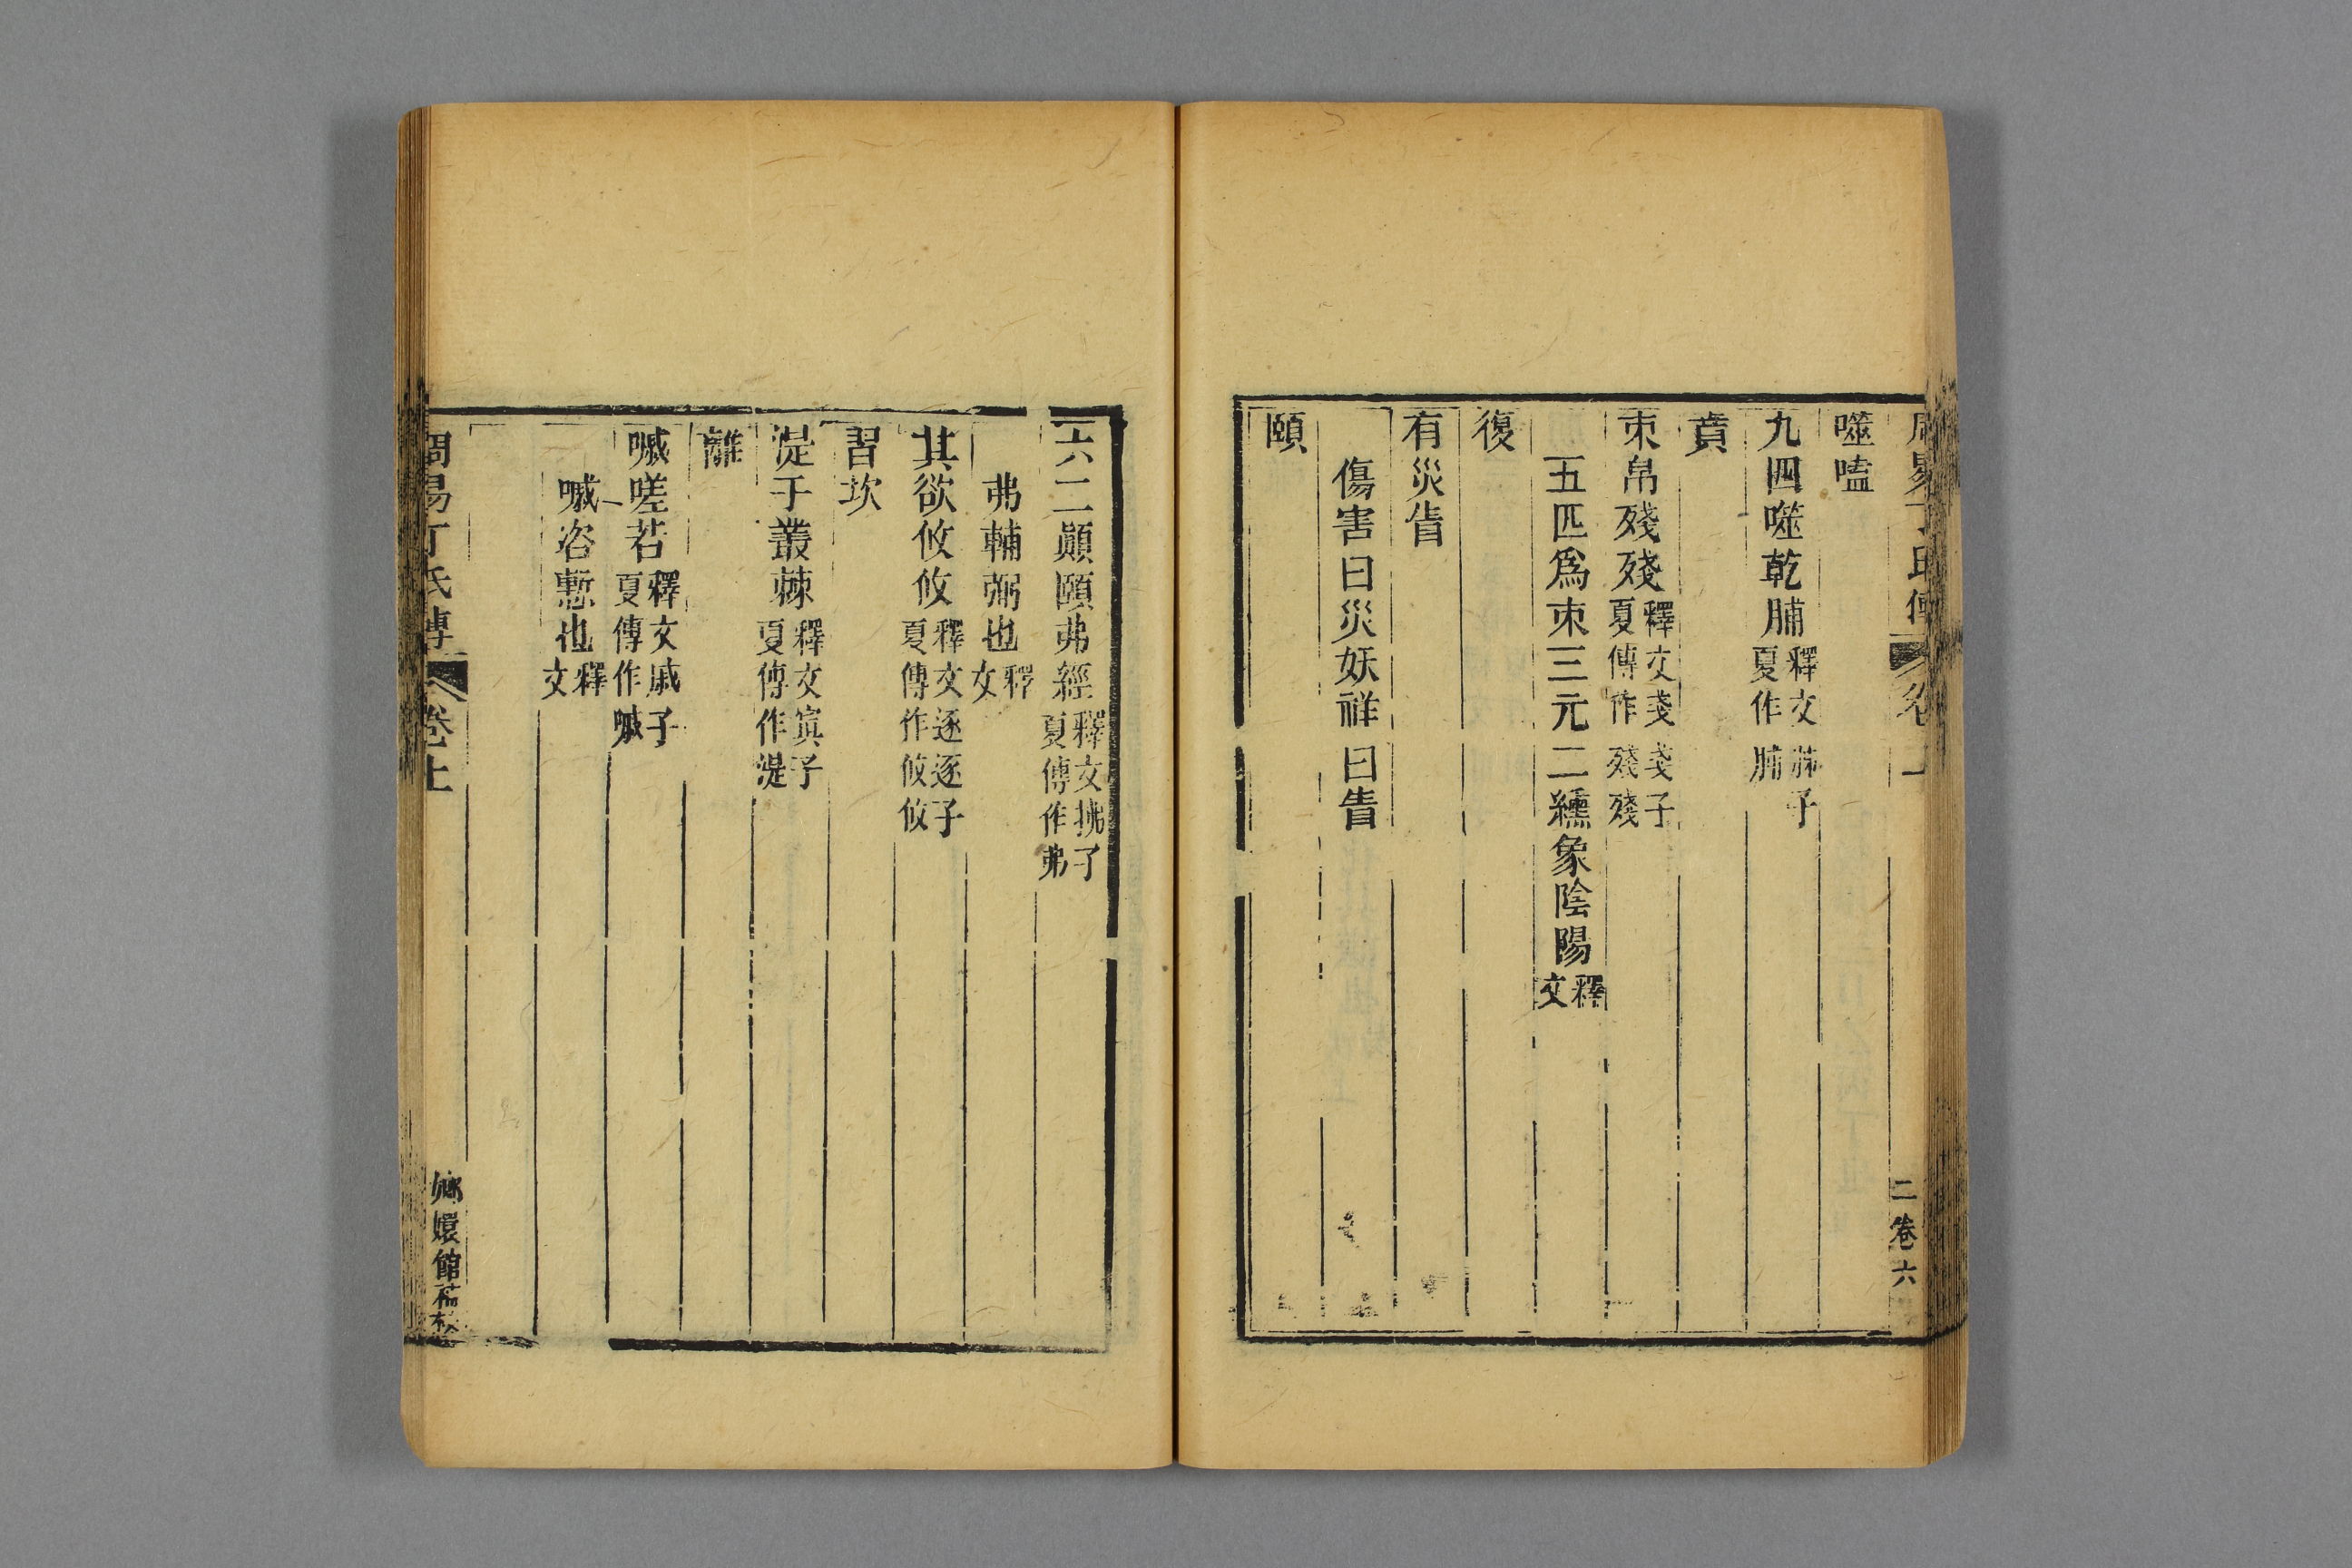 噬嗑
九四噬乾脯釋文胏子夏作脯
賁
束帛殘殘釋文戔戔子夏傳作殘殘
五匹爲束三元二纁象陰陽釋文
復
有災眚
傷害曰災妖祥曰眚
頤
二卷六
六二顚頤弗經釋文拂子夏傳作弗
弗輔弼也釋文
其欲攸攸釋文逐逐子夏傳作攸攸
習坎
湜于叢棘釋文寘子夏傳作湜
離
嘁嗟若釋文戚子夏傳作嘁
嘁咨慙也釋文
周易丁氏傳 卷上
嫏嬛館